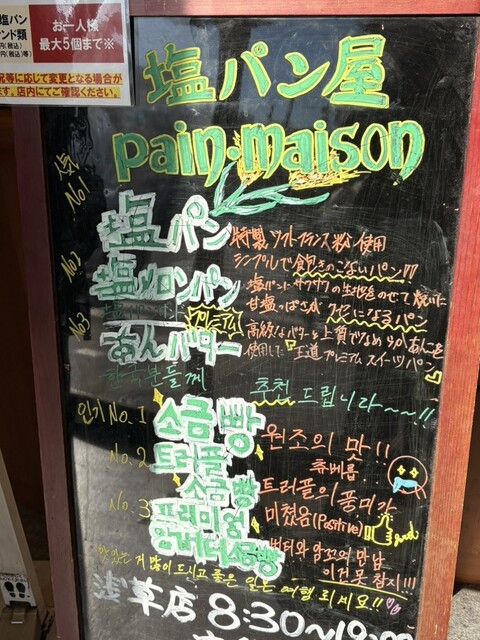 塩パン
お一人様
最大5個まで※
ンド類
円(税込)
円(税込)等)
況等に応じて変更となる場合が
ます。店内にてご確認ください。
塩パン屋
pain・maison
人気
No1
塩パン
特製ソフトフランス粉使用
シンプルで飽きのこないパン!!
No2
塩メロンパン
塩パンにサクサクの生地をのせて焼いた
甘塩っぱさがクセになるパン
No3
プレミアム
あんバター
高級なバターと上質でなめらかあんこを
使用した『王道プレミアムスイーツパン』
한국분들께
추천 드립니다~~~!!
인기 No.1
소금빵
원조의 맛!!
츄베릅
No.2
트러플
소금빵
트러플의 풍미가
미쳤음(Positive)
good
No.3
프리미엄
앙버터소금빵
버터와 앙꼬의 만남
이건 못 참지!!!
맛있는 거 많이 드시고 좋은 일본 여행 되세요!!
浅草店 8:30~19:00